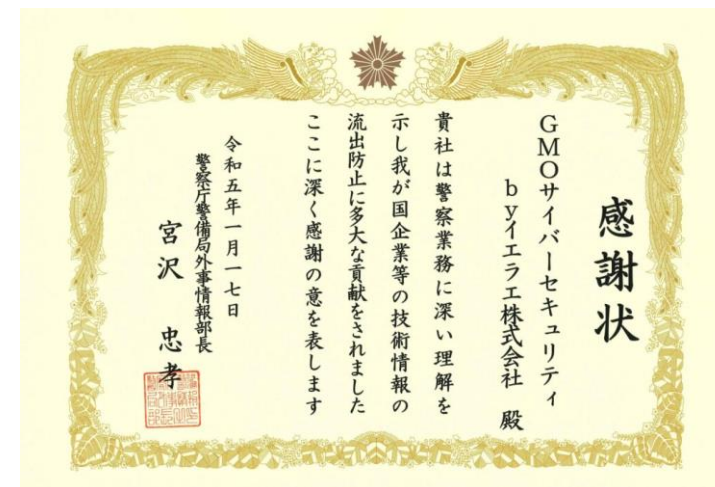 感謝状
GMOサイバーセキュリティ
byイエラエ株式会社 殿
貴社は警察業務に深い理解を
示し我が国企業等の技術情報の
流出防止に多大な貢献をされました
ここに深く感謝の意を表します
令和五年一月一七日
警察庁警備局外事情報部長
宮沢 忠孝